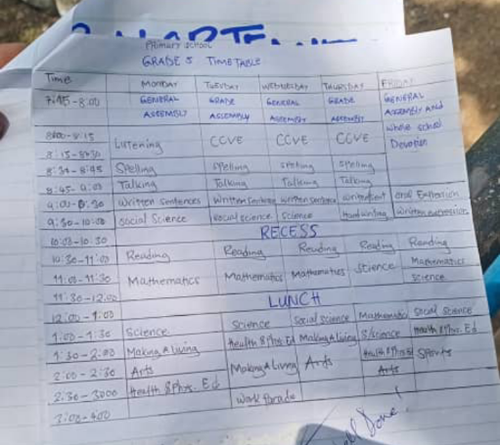 Primary School
GRADE 5 TIMETABLE
Time MONDAY TUESDAY WEDNESDAY THURSDAY FRIDAY
7:45-8:00 GENERAL ASSEMBLY GRADE ASSEMBLY GENERAL ASSEMBLY GRADE ASSEMBLY GENERAL ASSEMBLY AND whole school Devotion
8:00-8:15 Listening CCVE CCVE CCVE
8:15-8:30
8:30-8:45 Spelling Spelling Spelling Spelling
8:45-9:00 Talking Talking Talking Talking
9:00-9:30 Written Sentences Written Sentences Written sentences Written sent oral Expression
9:30-10:00 Social Science Social science Science Handwriting Written expression
RECESS
10:00-10:30
10:30-11:00 Reading Reading Reading Reading Reading
11:00-11:30 Mathematics Mathematics Mathematics Science Mathematics
11:30-12:00 Science
LUNCH
12:00-1:00
1:00-1:30 Science Science Social Science Mathematics Social Science
1:30-2:00 Making A Living Health & Phys. Ed Making A Living Science Health & Phys. Ed
2:00-2:30 Arts Making A Living Arts Sports
2:30-3:00 Health & Phys. Ed Arts
3:00-4:00 Work Parade
Done!